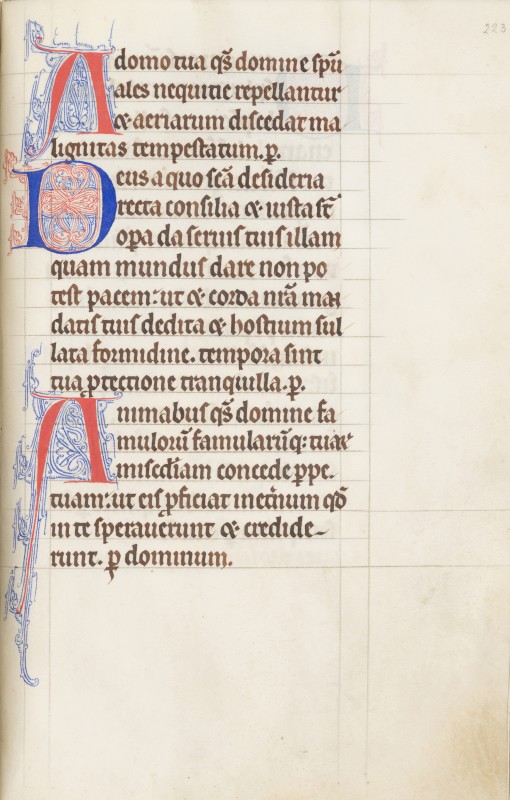 223
A domo tua qs̃ domine spũ
ales nequitie repellantur
& aeriarum discedat ma
lignitas tempestatum. p.
Deus a quo scã desideria
recta consilia & iusta st̃
opa da seruis tuis illam
quam mundus dare non po
test pacem: ut & corda nrã man
datis tuis dedita & hostium sub
lata formidine. tempora sint
tua ꝓtectione tranquilla. p.
Animabus qs̃ domine fa
mulorũ famularũq: tuaꝝ
misẽdiam concede ꝑpe.
tuam: ut eis ꝓficiat inet̃num qđ
in te speraverunt & credide-
runt. ꝑ dominum.